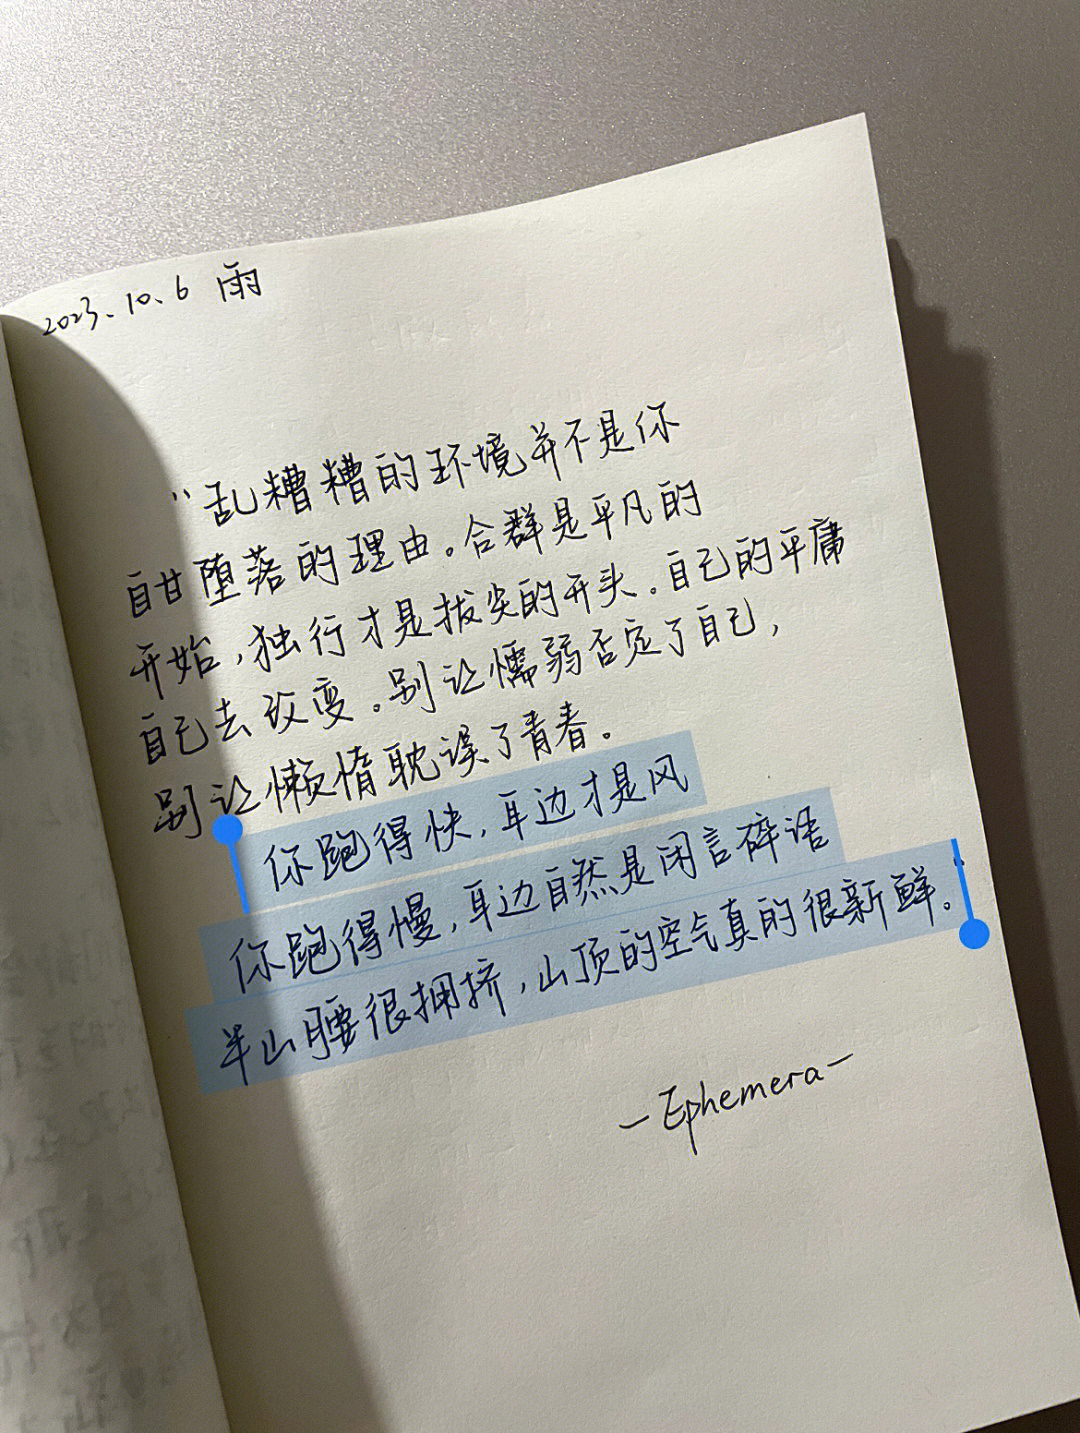 2023.10.6 雨
“乱糟糟的环境并不是你
自甘堕落的理由。合群是平凡的
开始,独行才是拔尖的开头。自己的平庸
自己去改变。别让懦弱否定了自己,
别让懒惰耽误了青春。
你跑得快,耳边才是风
你跑得慢,耳边自然是闲言碎语
半山腰很拥挤,山顶的空气真的很新鲜。”
—Ephemera—